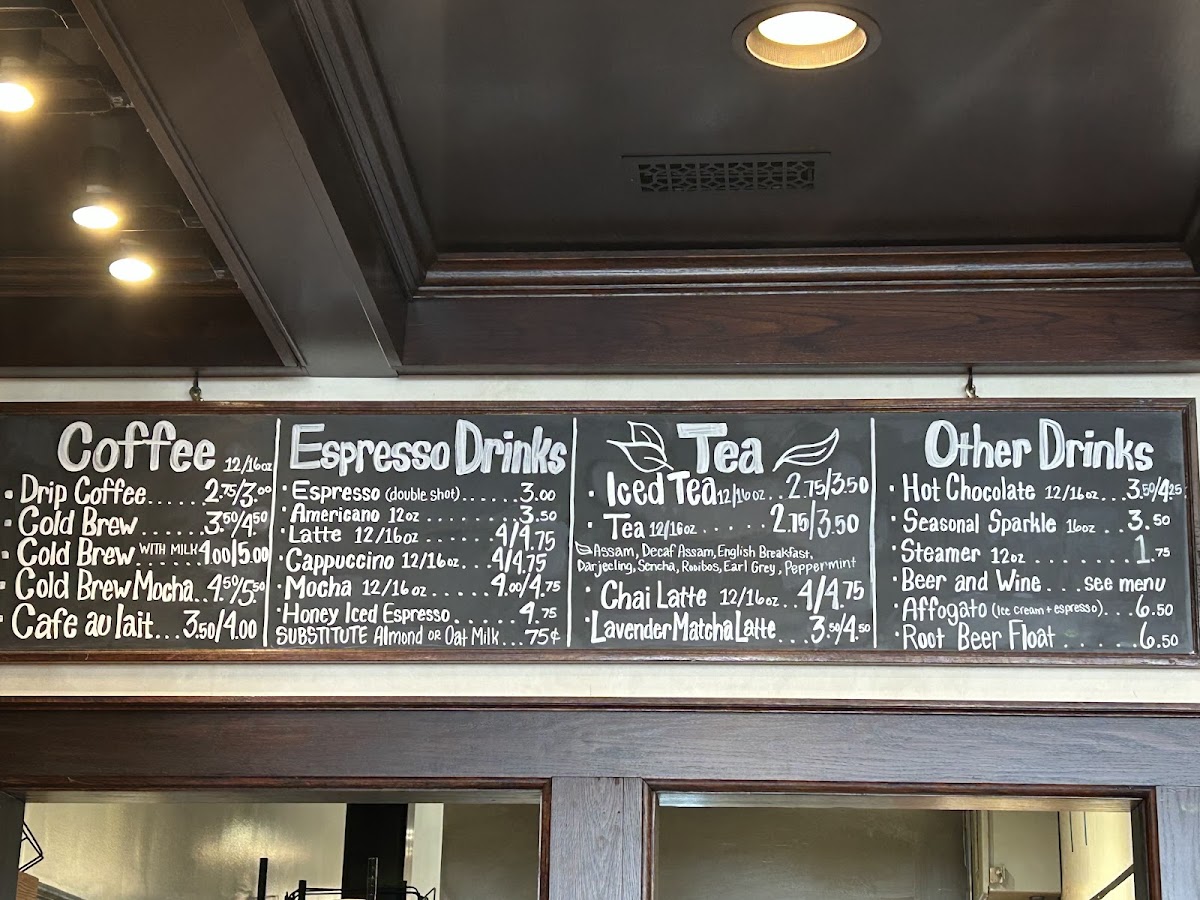 Coffee 12/16oz
Drip Coffee..... 2.75/3.00
Cold Brew...... 3.50/4.50
Cold Brew WITH MILK.. 4.00/5.00
Cold Brew Mocha.. 4.50/5.50
Cafe au lait... 3.50/4.00
Espresso Drinks
Espresso (double shot)...... 3.00
Americano 12oz ....... 3.50
Latte 12/16oz ...... 4/4.75
Cappuccino 12/16oz... 4/4.75
Mocha 12/16oz..... 4.00/4.75
Honey Iced Espresso..... 4.75
SUBSTITUTE Almond OR Oat Milk... 75¢
Tea
Iced Tea 12/16oz.. 2.75/3.50
Tea 12/16oz...... 2.75/3.50
Assam, Decaf Assam, English Breakfast,
Darjeeling, Sencha, Rooibos, Earl Grey, Peppermint
Chai Latte 12/16oz.. 4/4.75
Lavender Matcha Latte... 3.50/4.50
Other Drinks
Hot Chocolate 12/16oz... 3.50/4.25
Seasonal Sparkle 16oz... 3.50
Steamer 12oz ......... 1.75
Beer and Wine.... see menu
Affogato (Ice cream + espresso)... 6.50
Root Beer Float ...... 6.50